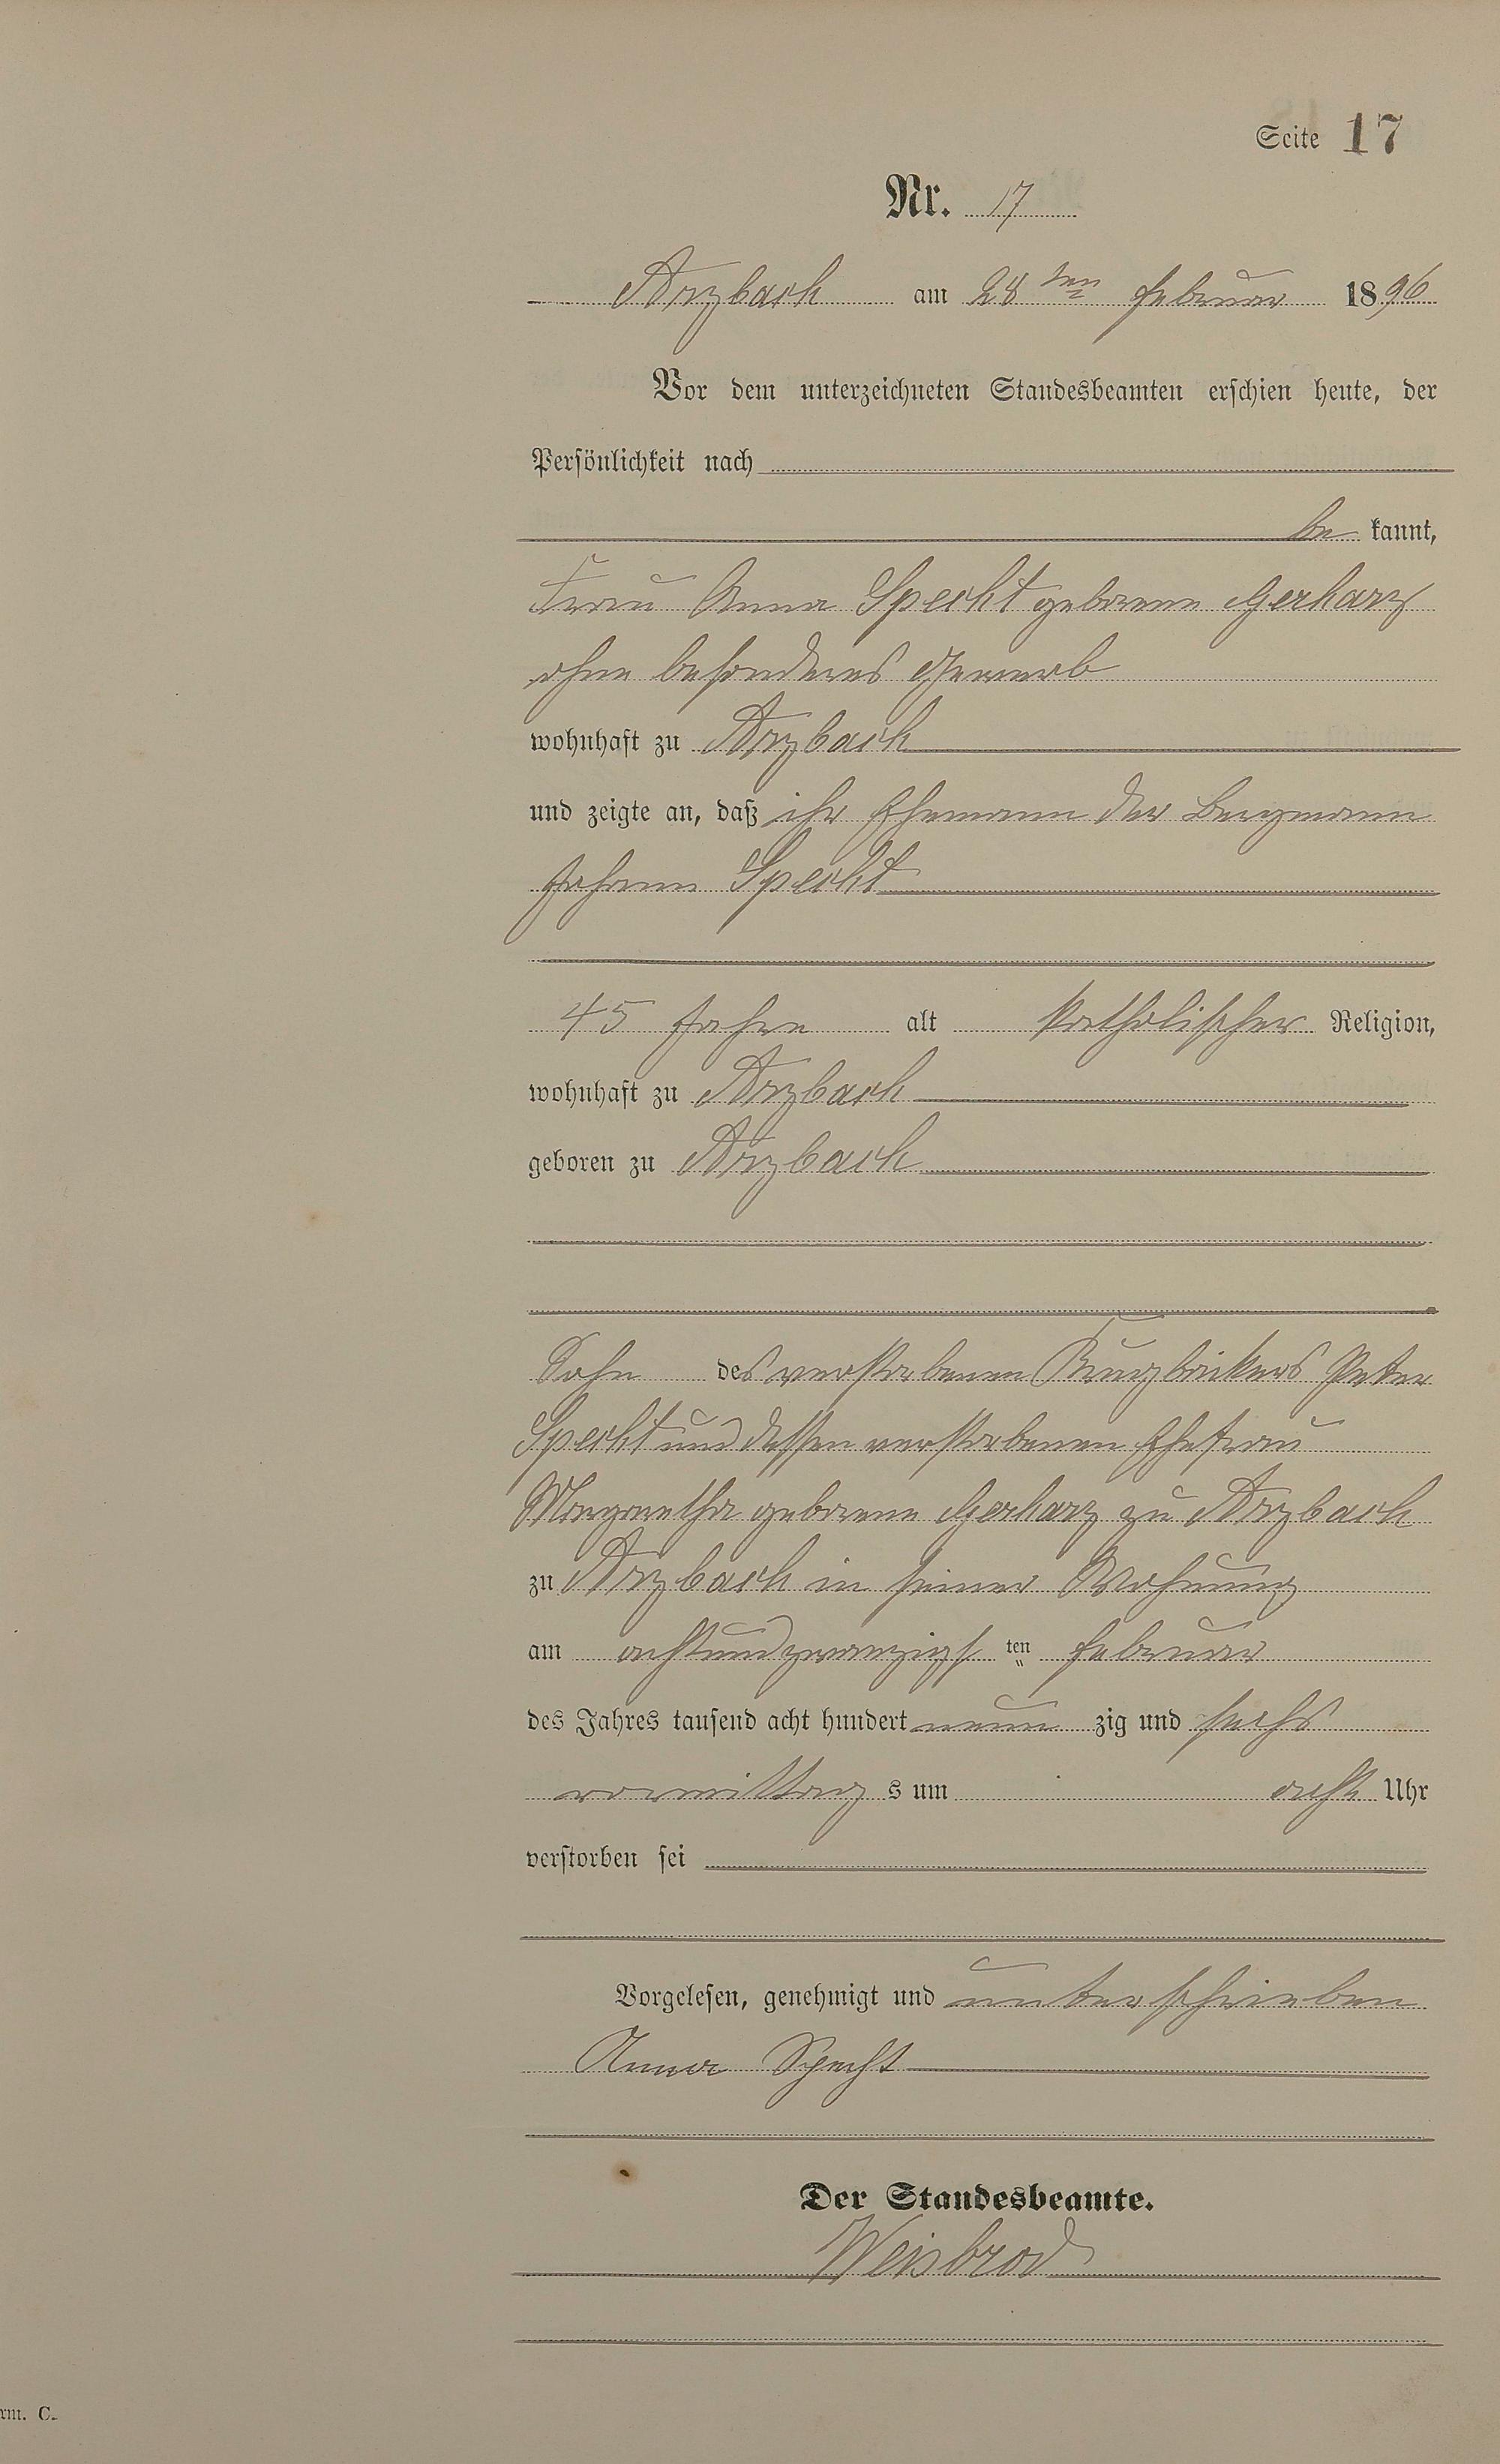 Seite 17
Nr. 17
Arzbach am 28ten Februar 1896
Vor dem unterzeichneten Standesbeamten erschien heute, der
Persönlichkeit nach
be kannt,
Frau Anna Specht geborene Gerharz
ohne besonderes Gewerb
wohnhaft zu Arzbach
und zeigte an, daß ihr Ehemann der Bergmann
Johann Specht
45 Jahre alt katholischer Religion,
wohnhaft zu Arzbach
geboren zu Arzbach
Sohn des verstorbenen Krugbäckers Peter
Specht und dessen verstorbenen Ehefrau
Margaretha geborene Gerharz zu Arzbach
zu Arzbach in seiner Wohnung
am achtundzwanzigsten Februar
des Jahres tausend acht hundert neun zig und sechs
vormittag s um acht Uhr
verstorben sei
Vorgelesen, genehmigt und unterschrieben
Anna Specht
Der Standesbeamte.
Weisbrod
rm. C.